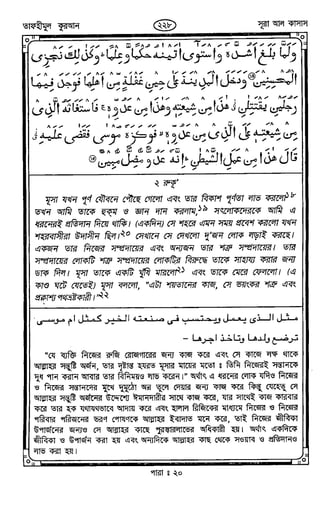 তাফহীমুল কুরআন
২২৮
সূরা আল কাসাস
وَلَمَّا بَلَغَ اَشُدَّهٗ وَاسْتَوٰٓى اٰتَيْنٰهُ حُكْمًا وَّعِلْمًا ۭ وَكَذٰلِكَ نَجْزِي
الْمُحْسِنِيْنَ ۞ وَدَخَلَ الْمَدِيْنَةَ عَلٰى حِيْنِ غَفْلَةٍ مِّنْ اَهْلِهَا فَوَجَدَ فِيْهَا
رَجُلَيْنِ يَقْتَتِلٰنِ ۤ هٰذَا مِنْ شِيْعَتِهٖ وَهٰذَا مِنْ عَدُوِّهٖ ۚ فَاسْتَغَاثَهُ الَّذِيْ
مِنْ شِيْعَتِهٖ عَلَى الَّذِيْ مِنْ عَدُوِّهٖ ۙ فَوَكَزَهٗ مُوْسٰى فَقَضٰى عَلَيْهِ ۤ
قَالَ هٰذَا مِنْ عَمَلِ الشَّيْطٰنِ ۭ اِنَّهٗ عَدُوٌّ مُّضِلٌّ مُّبِيْنٌ ۞
২ রুকু'
মূসা যখন পূর্ণ যৌবনে পৌঁছে গেলো এবং তার বিকাশ পূর্ণতা লাভ করলো১৮
তখন আমি তাকে হুকুম ও জ্ঞান দান করলাম,১৯ সৎলোকদেরকে আমি এ
ধরনেরই প্রতিদান দিয়ে থাকি। (একদিন) সে শহরে এমন সময় প্রবেশ করলো যখন
শহরবাসীরা উদাসীন ছিল।২০ সেখানে সে দেখলো দু'জন লোক লড়াই করছে।
একজন তার নিজের সম্প্রদায়ের এবং অন্যজন তার শত্রু সম্প্রদায়ের। তার
সম্প্রদায়ের লোকটি শত্রু সম্প্রদায়ের লোকটির বিরুদ্ধে তাকে সাহায্য করার জন্য
ডাক দিল। মূসা তাকে একটি ঘুঁষি মারলো২১ এবং তাকে মেরে ফেললো। (এ
কাণ্ড ঘটে যেতেই) মূসা বললো, "এটা শয়তানের কাজ, সে ভয়ংকর শত্রু এবং
প্রকাশ্য পথভ্রষ্টকারী।"২২
مثل الذى يعمل ويحتسب فى صنعته الخير كمثل ام موسى
ترضع ولدها وتاخذ اجرها -
"যে ব্যক্তি নিজের রুজি রোজগারের জন্য কাজ করে এবং সে কাজে লক্ষ থাকে
আল্লাহর সন্তুষ্টি অর্জন, তার দৃষ্টান্ত হযরত মূসার মায়ের মতো : তিনি নিজেরই সন্তানকে
দুধ পান করান আবার তার বিনিময়ও লাভ করেন।" অর্থাৎ এ ধরনের লোক যদিও নিজের
ও নিজের সন্তানদের মুখে দুমুঠো অন্ন তুলে দেয়ার জন্য কাজ করে কিন্তু যেহেতু সে
আল্লাহর সন্তুষ্টি অর্জনের উদ্দেশ্যে ঈমানদারীর সাথে কাজ করে, যার সাথেই কাজ কারবার
করে তার হক যথাযথভাবে আদায় করে এবং হালাল রিজিকের মাধ্যমে নিজের ও নিজের
পরিবার পরিজনের ভরণ পোষণকে আল্লাহর ইবাদাত মনে করে, তাই নিজের জীবিকা
উপার্জনের জন্যও সে আল্লাহর কাছে পুরস্কারলাভের অধিকারী হয়। অর্থাৎ একদিকে
জীবিকা ও উপার্জন করা হয় এবং অন্যদিকে আল্লাহর কাছ থেকে সওয়াব ও প্রতিদানও
লাভ করা হয়।
পারা : ২০